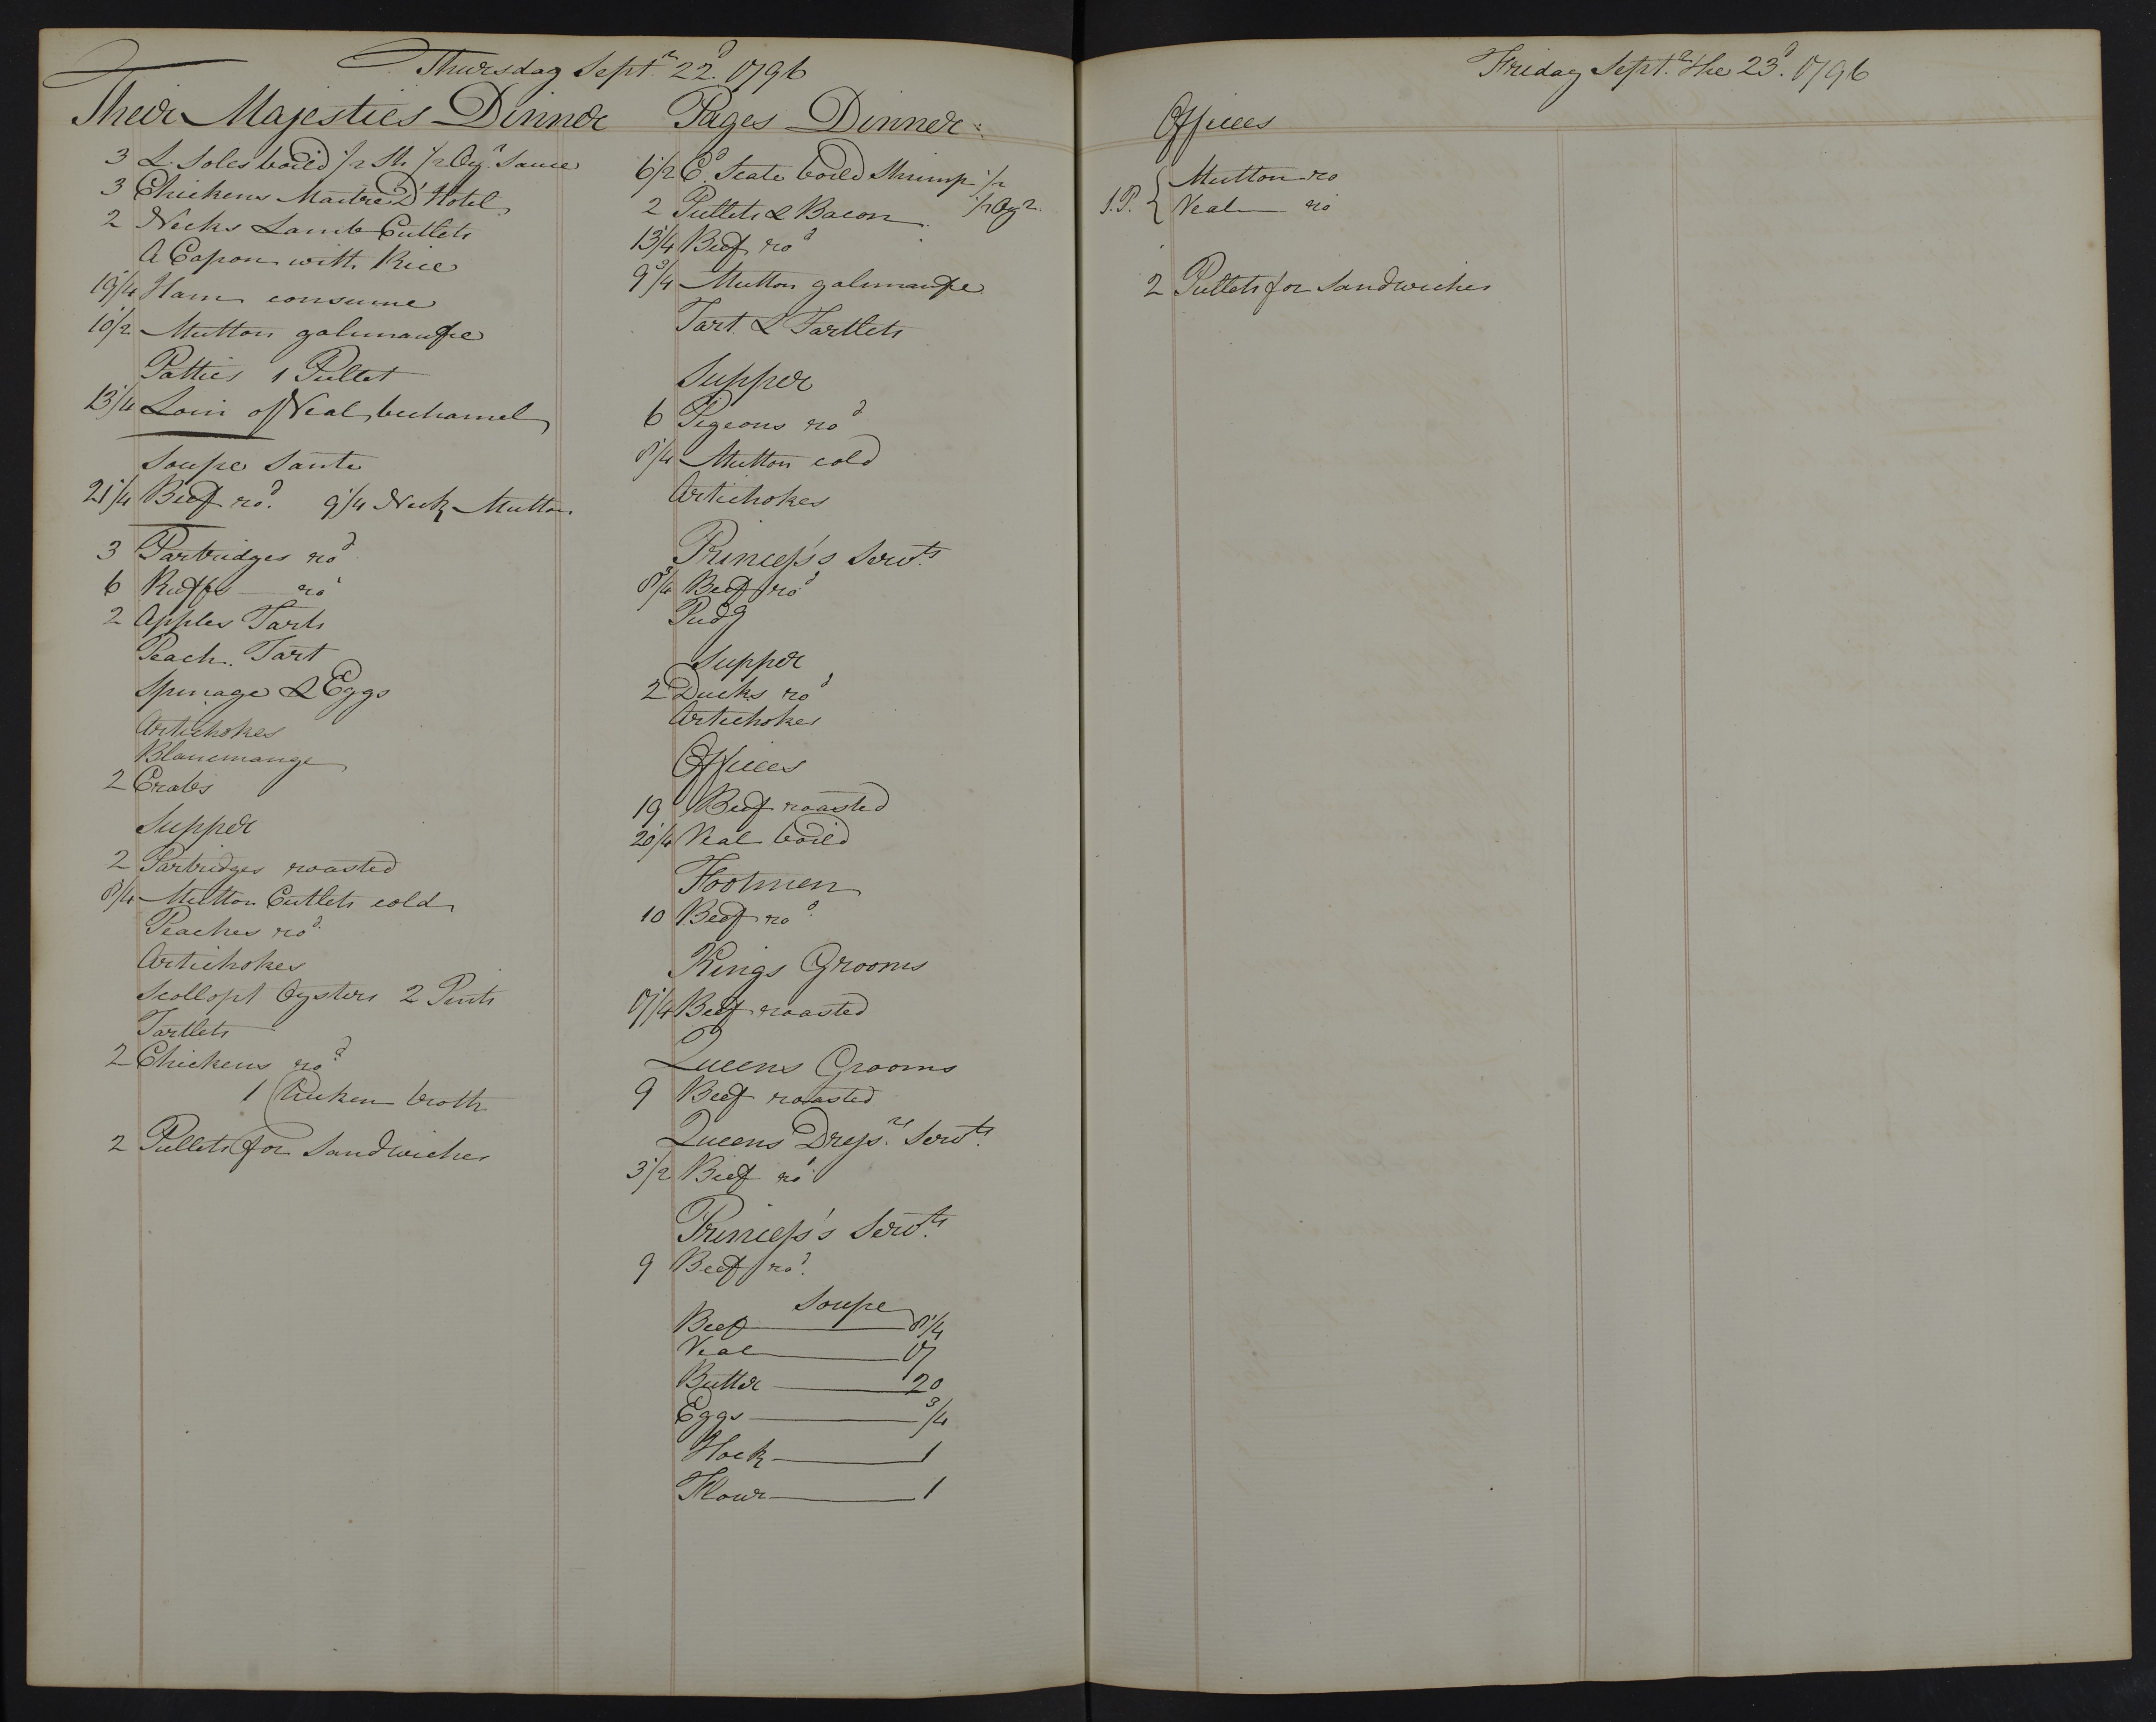 Thursday Sept.r 22d. 1796
Their Majesties Dinner
3 L. Soles boild 1/2 Sh. 1/2 Oyr. Sauce
3 Chickens Maitre D'Hotel
2 Necks Lamb Cutlets
A Capon with Rice
19 1/4 Ham consume
10 1/2 Mutton galimaufre
Patties 1 Pullet
13 1/4 Loin of Veal bechamel
Soupe Sante
21 1/4 Beef rod. 9 1/4 Neck Mutton
3 Partridges rod
6 Ruffs rod
2 Apples Tarts
Peach Tart
Spinage & Eggs
Artichokes
Blancmange
2 Crabs
Supper
2 Partridges roasted
8 1/4 Mutton Cutlets cold
Peaches rod.
Artichokes
Scollopt Oysters 2 Pints
Tartlets
2 Chickens rod
1 Chicken broth
2 Pullets for Sandwiches
Pages Dinner
6 1/2 Cd. Scate boild Shrimp 1/2
2 Pullets & Bacon 1/2 Oyr.
13 1/4 Beef rod
9 3/4 Mutton galimaufre
Tart & Tartlets
Supper
6 Pigeons rod
8 1/4 Mutton cold
Artichokes
Princess's Servts
8 3/4 Beef rod
Pudg
Supper
2 Ducks rod
Artichokes
Offices
19 Beef roasted
20 1/4 Veal boild
Footmen
10 Beef rod
Kings Grooms
7 1/4 Beef roasted
Queens Grooms
9 Beef roasted
Queens Dress.rs Servts.
3 1/2 Beef rod
Princess's Servts.
9 Beef rod.
Soupe
Beef 8 1/4
Veal 7
Butter 20
Eggs 3/4
Hock 1
Flour 1
Friday Sept.r the 23d. 1796
Offices
S.P. { Mutton ro
Veal ro
2 Pullets for Sandwiches